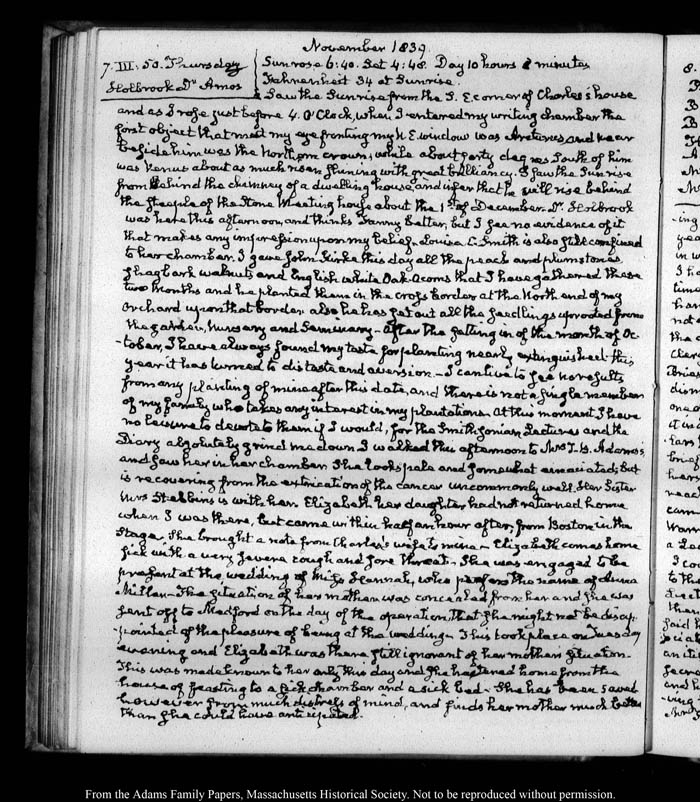 November 1839
7. III: 50. Thursday
Holbrook Dr. Amos
Sunrose 6:40. Set 4:48. Day 10 hours 8 minutes
Fahrenheit 34 at Sunrise.
I saw the Sunrise from the S. E corner of Charles's house
and as I rose just before 4. O'Clock, when I entered my writing chamber the
first object that met my eye fronting my N E window was Arcturus, and near
beside him was the Northern crown; while about forty degrees South of him
was Venus about as much risen shining with great brilliancy. I saw the Sun rise
from behind the chimney of a dwelling house, and infer that he will rise behind
the steeple of the Stone Meeting house about the 1st. of December. Dr. Holbrook
was here this afternoon, and thinks Fanny better, but I see no evidence of it
that makes any impression upon my belief. Louisa C. Smith is also still confined
to her chamber. I gave John Kirke this day all the peach and plumstones
Shagbark walnuts and English white Oak Acorns that I have gathered these
two months and he planted them in the cross border at the North end of my
Orchard upon that border also he has set out all the seedlings uprooted from
the garden, Nursery and Seminary - After the setting in of the month of Oc-
-tober, I have always found my taste for planting nearly extinguished this
year it has turned to distaste and aversion - I can live to see no results
from any planting of mine after this date, and there is not a single member
of my family who takes any interest in my plantations. At this moment I have
no leisure to devote to them if I would, for the Smithsonian Lectures and the
Diary absolutely grind me down. I walked this afternoon to Mrs T. B. Adams's,
and saw her in her chamber. She looks pale and somewhat emaciated; but
is recovering from the extrication of the cancer uncommonly well. Her Sister
Mrs Stebbins is with her. Elizabeth her daughter had not returned home
when I was there, but came within half an hour after, from Boston in the
Stage. She brought a note from Charles's wife to mine - Elizabeth comes home
sick with a very severe cough and sore throat - She was engaged to be
present at the wedding of Miss Hannah, who prefers the name of Anna
Miller - The situation of her mother was concealed from her and she was
sent off to Medford on the day of the operation, that she might not be disap-
-pointed of the pleasure of being at the wedding. This took place on Tuesday
evening and Elizabeth was there still ignorant of her mother's situation.
This was made known to her only this day and she hastened home from the
house of feasting to a sick chamber and a sick bed - She has been saved
however from much distress of mind, and finds her mother much better
than she could have anticipated.
From the Adams Family Papers, Massachusetts Historical Society. Not to be reproduced without permission.